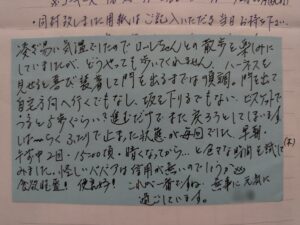 ・同封致しました用紙はご記入いただき当日お持ち下さい。
凌ぎ易い気温でしたのでローレちゃんとの散歩を楽しみに
していましたが、どうやっても歩いてくれません。ハーネスを
見せると喜び装着して門を出るまでは順調。門を出て
自宅方向へ行くでもなし、坂を下りるでもない。ビスケットで
つると5歩ぐらいって進むだけでまた戻ろうとしてしまいます
しばーらくふたりで止まった状態が毎回でした。早朝・
午前中2回・15:00頃・暗くなってから…と色々な時間を試して
みました。怪しいババァは信用が無いのでしょうか(笑)
食欲旺盛！便良好！これが一番ですね。無事に元気に
過ごしています。